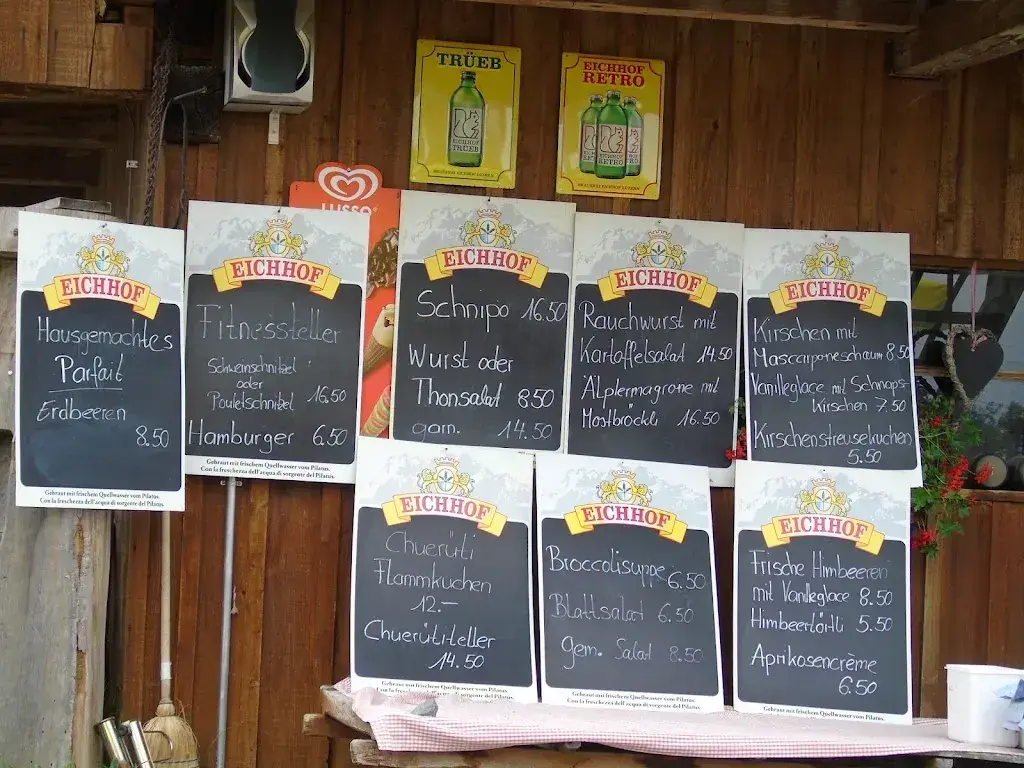 TRÜEB
EICHHOF
TRÜEB
EICHHOF
RETRO
EICHHOF
RETRO
LUSSO
EICHHOF
Hausgemachtes
Parfait
Erdbeeren
8.50
Gebraut mit frischem Quellwasser vom Pilatus.
Con la freschezza dell'acqua di sorgente del Pilatus.
EICHHOF
Fitnessteller
Schweinschnitzel
oder
Pouletschnitzel 16.50
Hamburger 6.50
Gebraut mit frischem Quellwasser vom Pilatus.
Con la freschezza dell'acqua di sorgente del Pilatus.
EICHHOF
Schnipo 16.50
Wurst oder
Thonsalat 8.50
garn. 14.50
EICHHOF
Rauchwurst mit
Kartoffelsalat 14.50
Älplermagrone mit
Mostbröckli 16.50
EICHHOF
Kirschen mit
Mascarponeschaum 8.50
Vanilleglace mit Schnaps-
Kirschen 7.50
Kirschenstreuselkuchen
5.50
EICHHOF
Chuerüti
Flammkuchen
12.–
Chuerütiteller
14.50
Gebraut mit frischem Quellwasser vom Pilatus.
Con la freschezza dell'acqua di sorgente del Pilatus.
EICHHOF
Broccolisuppe 6.50
Blattsalat 6.50
gem. Salat 8.50
Gebraut mit frischem Quellwasser vom Pilatus.
Con la freschezza dell'acqua di sorgente del Pilatus.
EICHHOF
Frische Himbeeren
mit Vanilleglace 8.50
Himbeertörtli 5.50
Aprikosencrème
6.50
Gebraut mit frischem Quellwasser vom Pilatus.